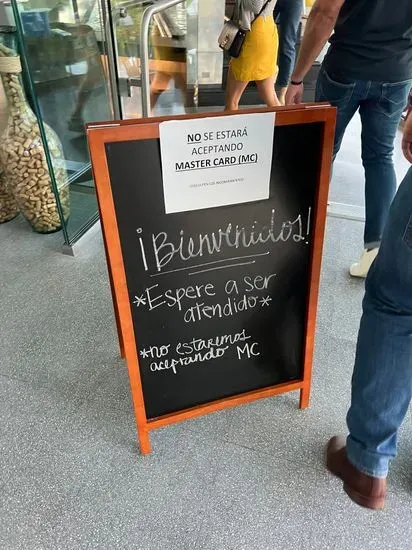 NO SE ESTARÁ
ACEPTANDO
MASTER CARD (MC)
¡Bienvenidos!
*Espere a ser
atendido*
*no estaremos
aceptando MC